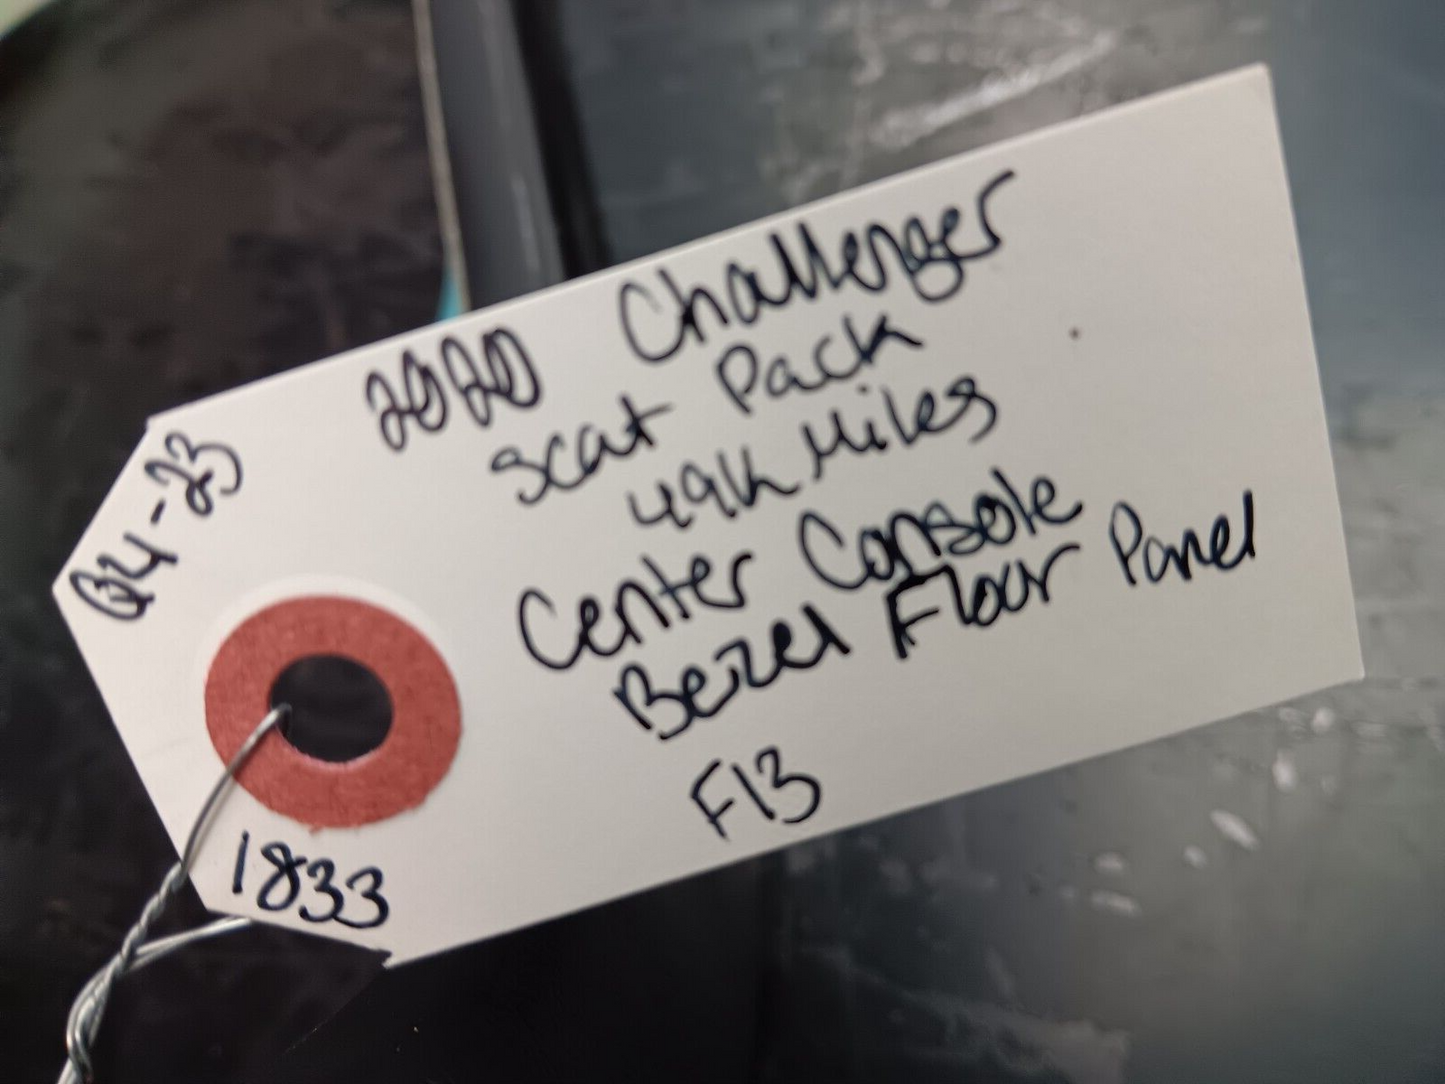 2020 Challenger
Scat Pack
49K Miles
Center Console
Bezel Floor Panel
F13
Q4-23
1833